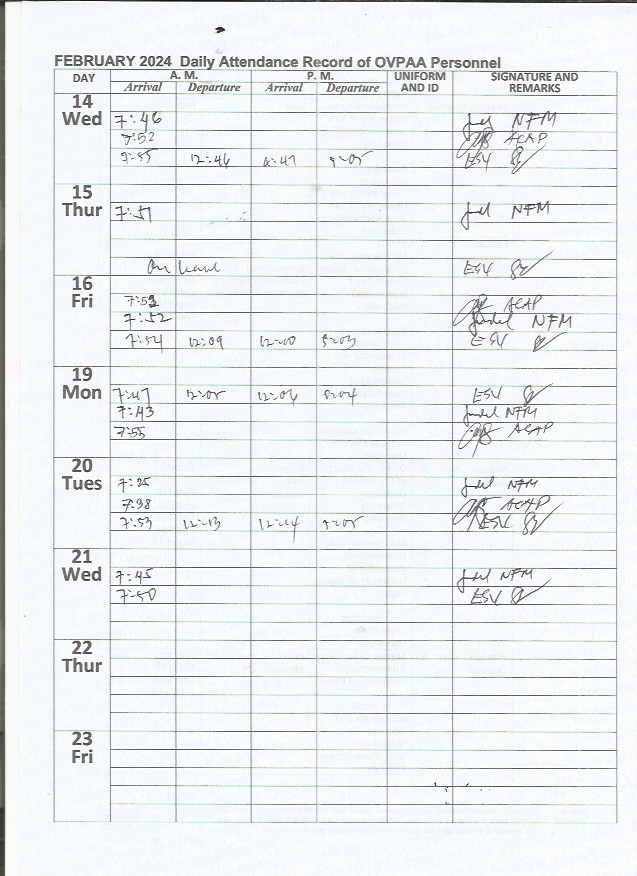 FEBRUARY 2024 Daily Attendance Record of OVPAA Personnel
DAY A. M. P. M. UNIFORM AND ID SIGNATURE AND REMARKS
Arrival Departure Arrival Departure
14 Wed
7:46 NFM
7:52 ACAP
7:55 12:46 ESV
15 Thur
7:51 NFM
On leave ESV
16 Fri
ACAP
7:52 NFM
7:54 12:09 5:03 ESV
19 Mon
7:47 12:05 12:06 5:04 ESV
7:43 NFM
7:55 ACAP
20 Tues
7:25 NFM
7:38 ACAP
7:53 12:13 12:14 5:05 ESV
21 Wed
7:45 NFM
7:50 ESV
22 Thur
23 Fri